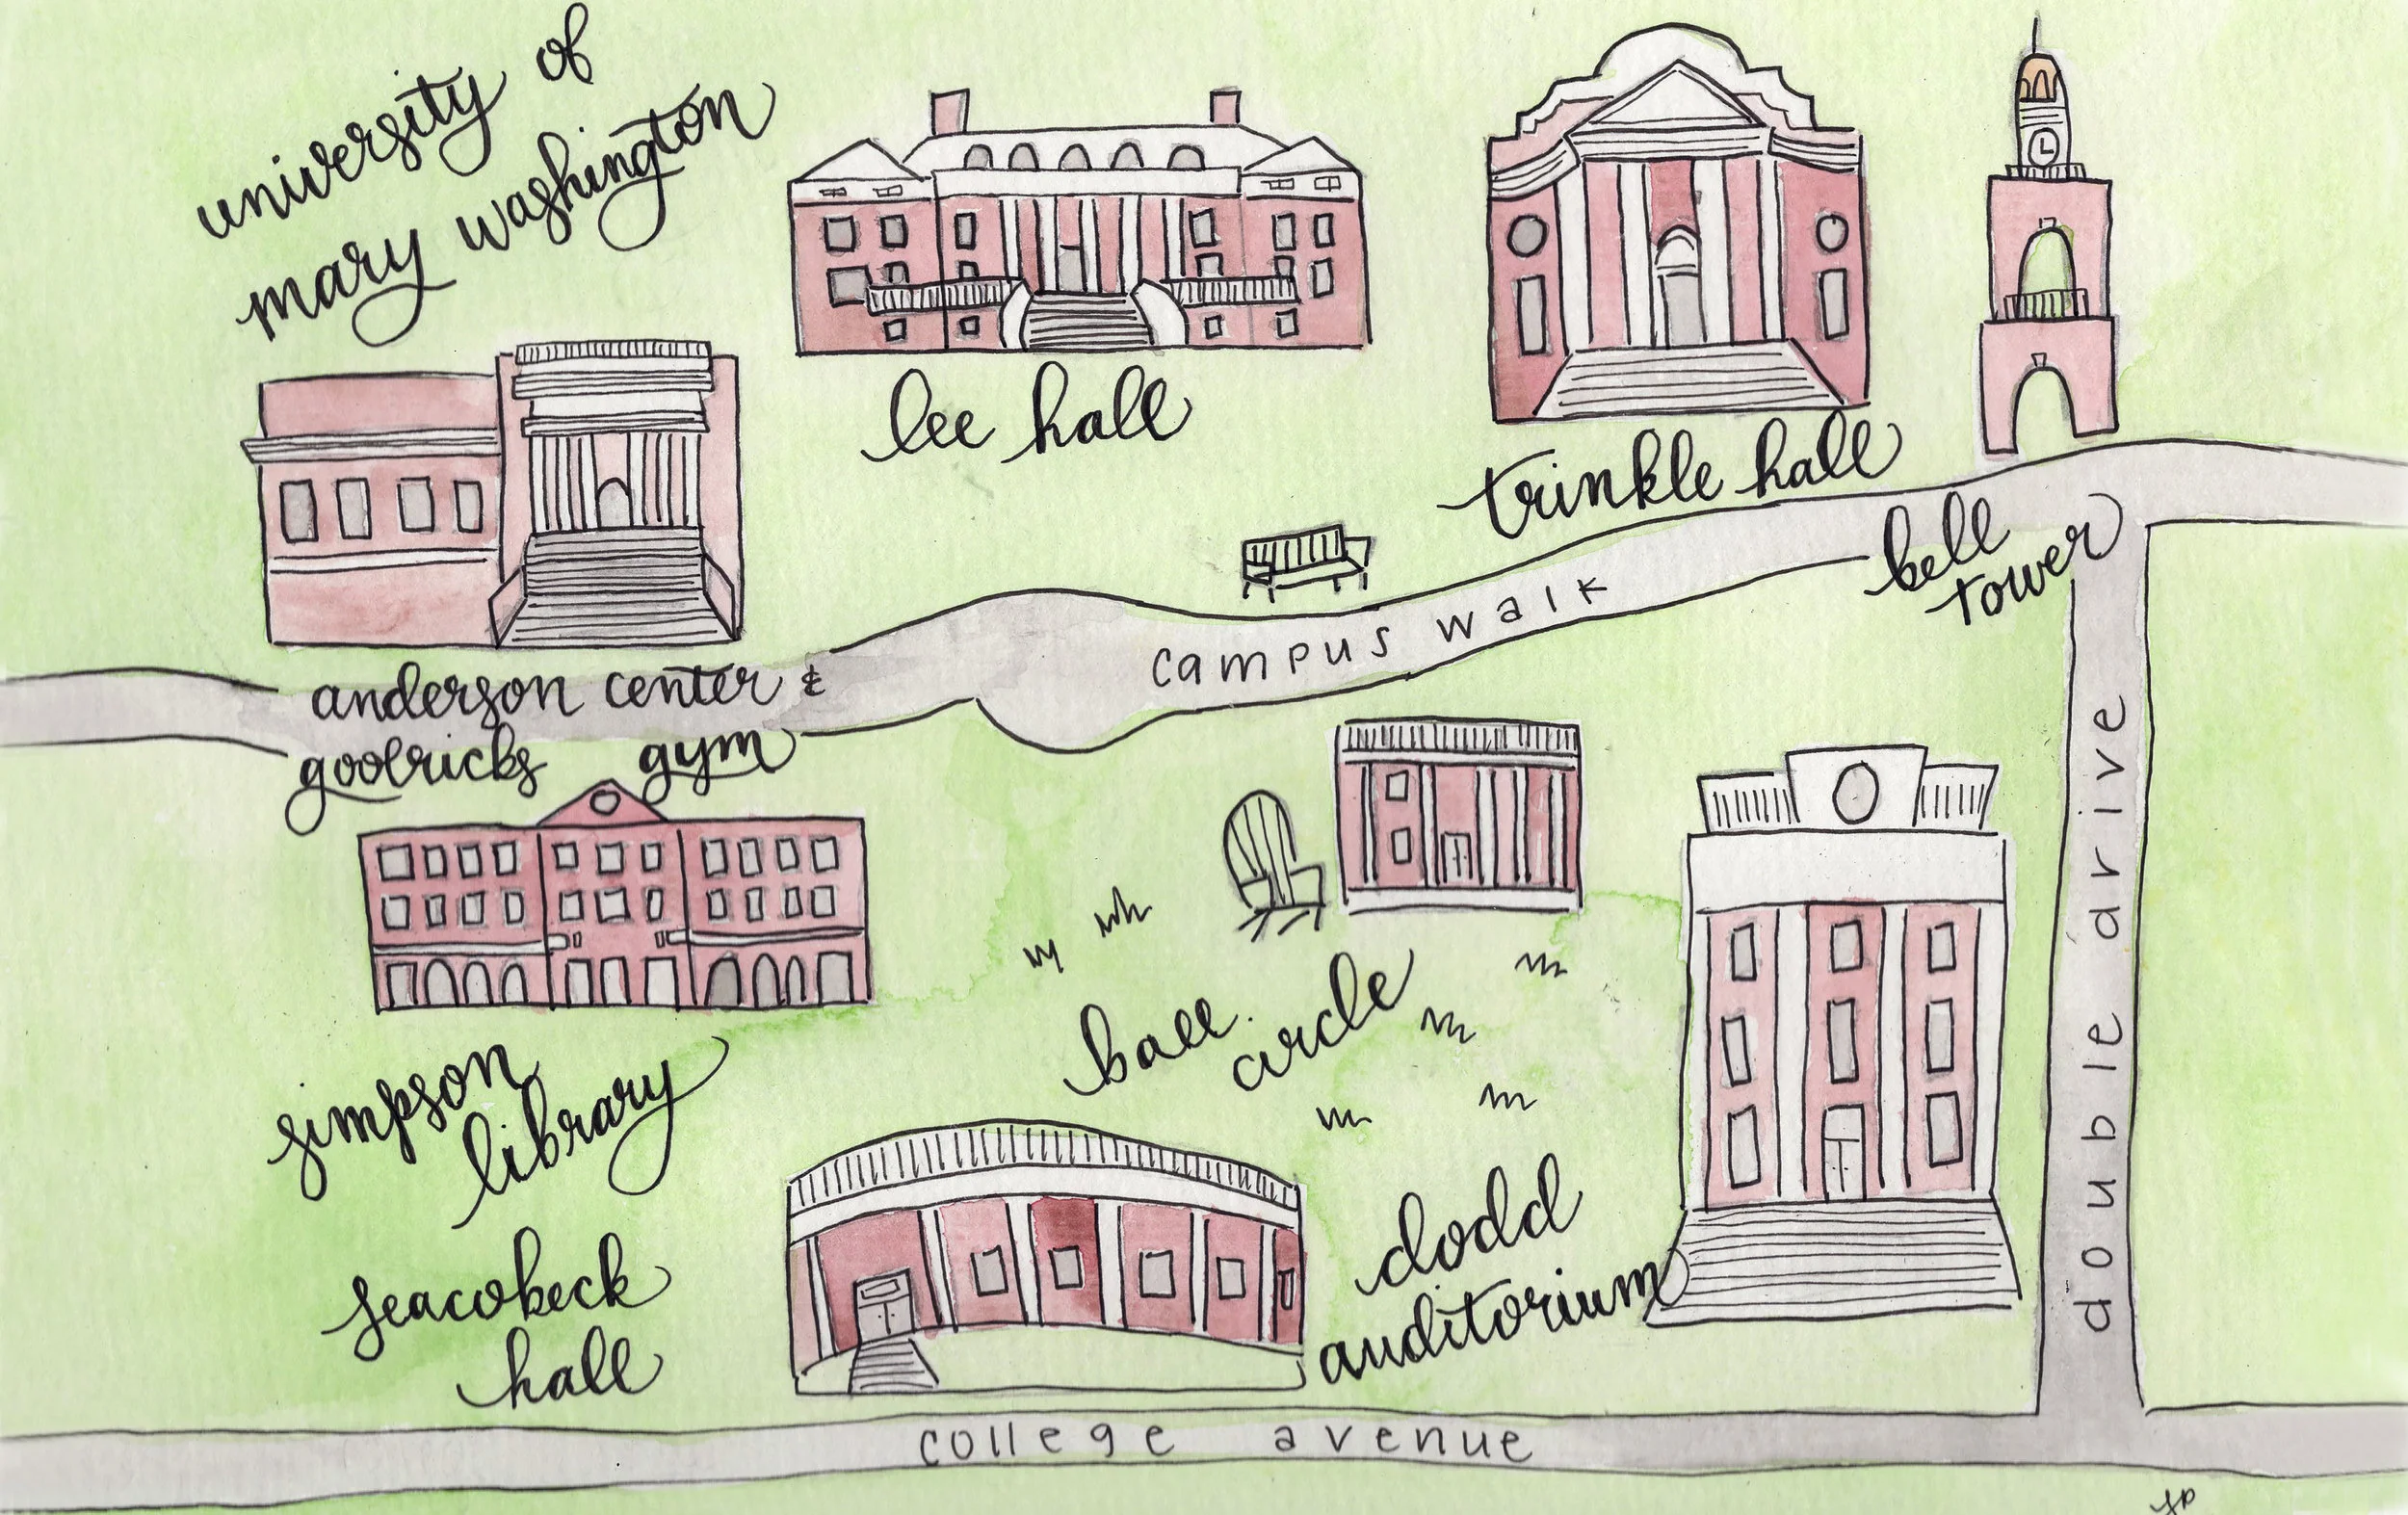 university of
mary washington
lee hall
trinkle hall
bell
tower
campus walk
anderson center &
goolricks gym
simpson
library
ball
circle
double drive
seacobeck
hall
dodd
auditorium
college avenue